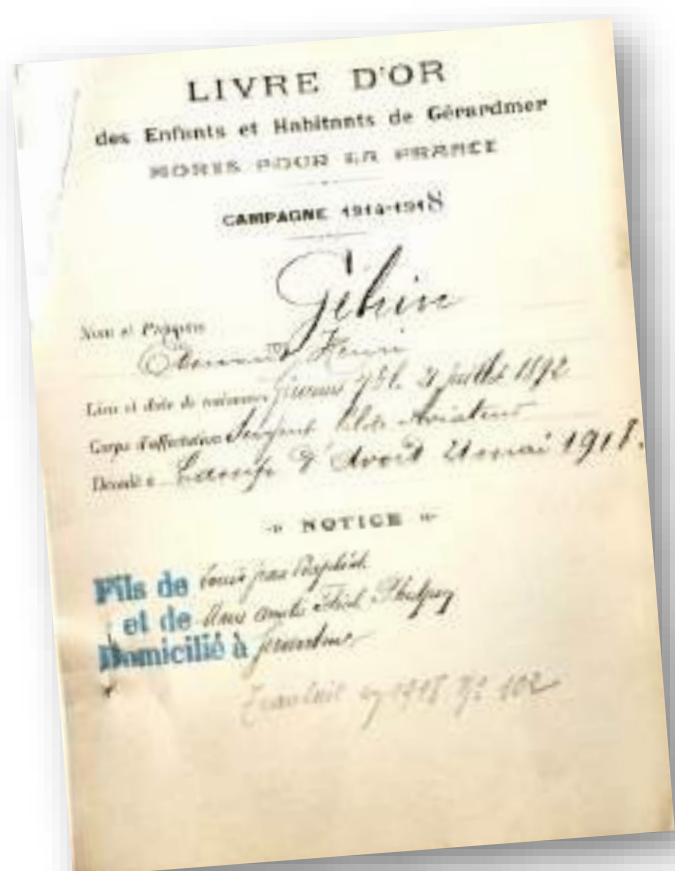 LIVRE D'OR
des Enfants et Habitants de Gérardmer
MORTS POUR LA FRANCE
CAMPAGNE 1914-1918
Géhin
Nom et Prénoms
Henri
Lieu et date de naissance 21 juillet 1892
Corps d'affectation Sergent Pilote Aviateur
Décédé à Camp d'Avord 21 mai 1918.
NOTICE
Fils de Louis Jean Baptiste
et de
Domicilié à Gérardmer
Transcrit 1918 Nº 102